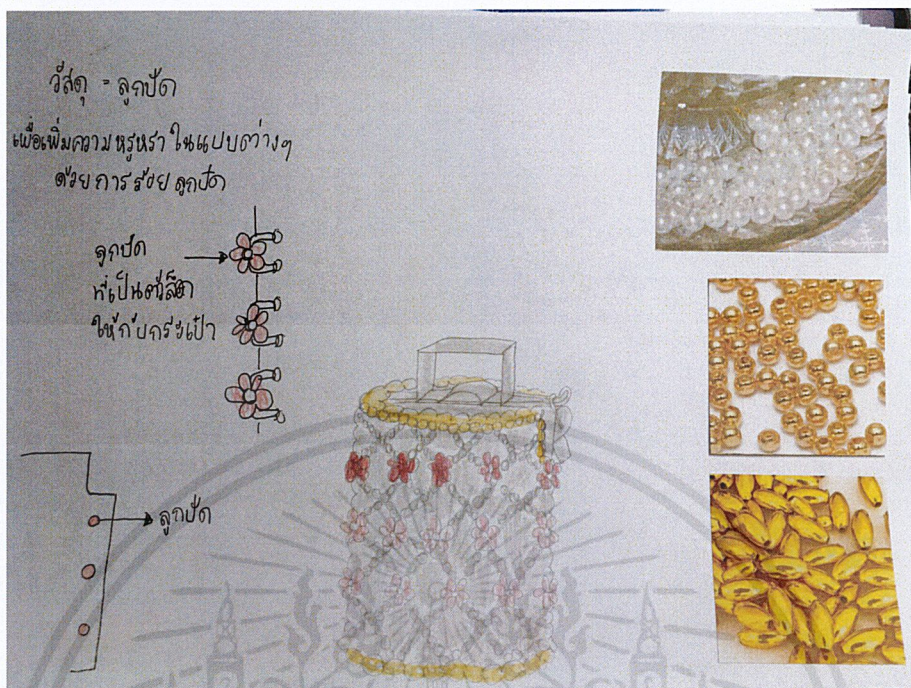 วัสดุ = ลูกปัด
เพื่อเพิ่มความหรูหรา ในแบบต่างๆ
ด้วยการร้อย ลูกปัด
ลูกปัด
ที่เป็นตัวล็อค
ให้กับกระเป๋า
ลูกปัด